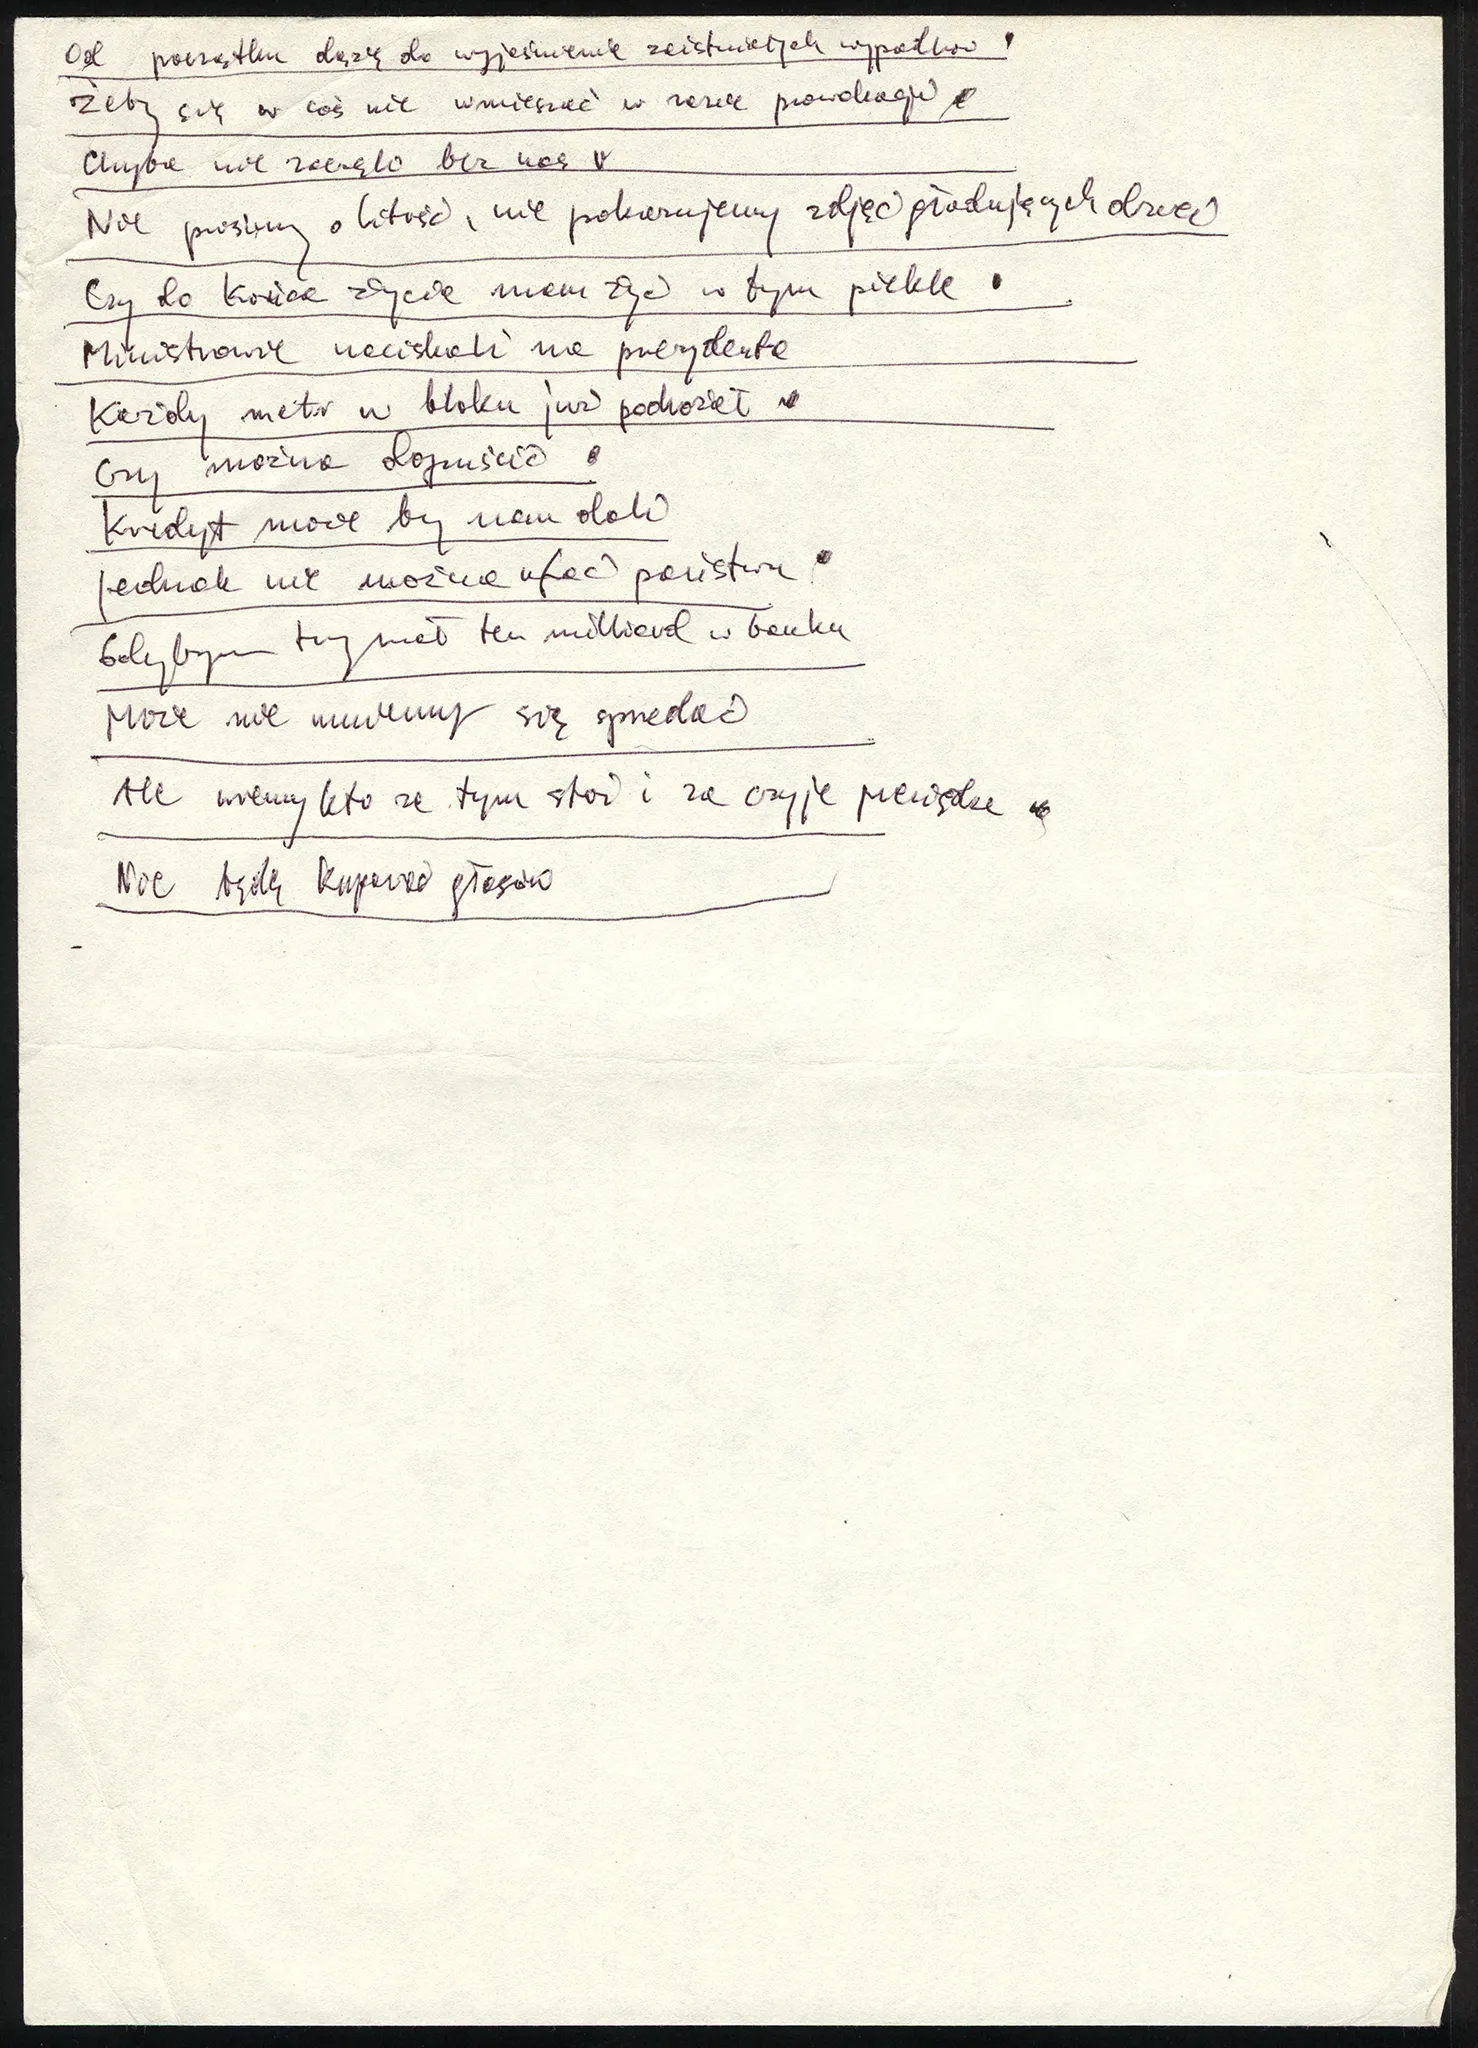 Od początku dążę do wyjaśnienia zaistniałych wypadków
Żeby się w coś nie wmieszać w razie prowokacji
Chyba nie zaczęło bez nas
Nie prosimy o litość, nie pokazujemy zdjęć głodujących dzieci
Czy do końca życia mam żyć w tym piekle
Ministrowie naciskali na prezydenta
Każdy metr w bloku już podrożał
Czy można dopuścić
Kredyt może by nam dali
Jednak nie można ufać państwu
Gdybym trzymał ten milliard w banku
Może nie musiemy się sprzedać
Ale wiemy kto za tym stoi i za czyje pieniądze
Nie będę kupować głosów